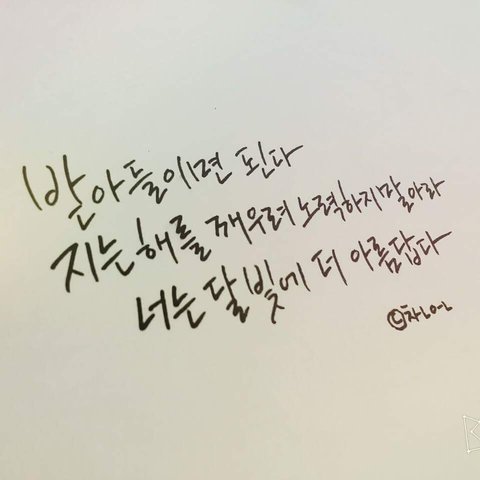 받아들이면 된다
지는 해를 깨우려 노력하지말아라
너는 달빛에 더 아름답다